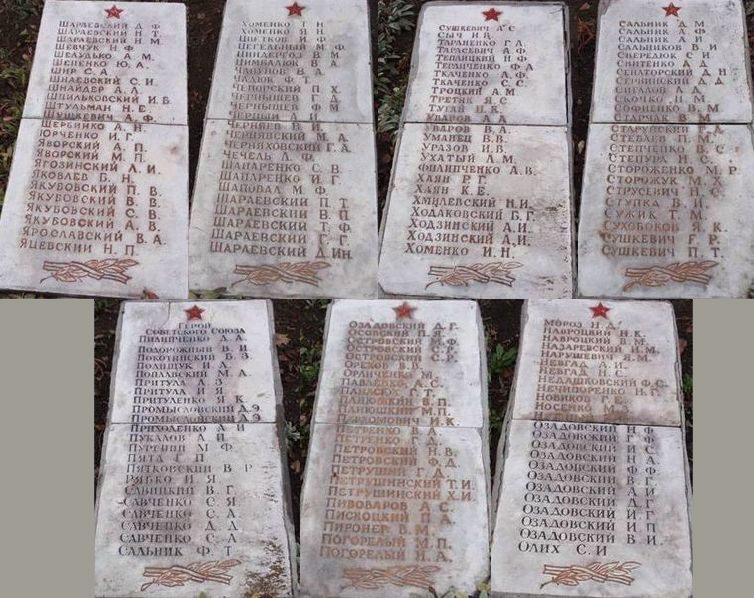 ШАРАЕВСКИЙ Д.Ф.
ШАРАЕВСКИЙ Н.Т.
ШАРАЕВСКИЙ Н.М.
ШЕВЧУК И.Ф.
ШЕЛУДЬКО А.М.
ШЕПЕНКО Ю.А.
ШИР С.А.
ШНАЕВСКИЙ С.И.
ШНАЙДЕР А.Л.
ШПИЛЬКОВСКИЙ И.Б.
ШТУЛЬМАН Н.Е.
ШУШКЕВИЧ А.Ф.
ЩЕРБИНКО А.Н.
ЮРЧЕНКО И.Г.
ЯВОРСКИЙ А.П.
ЯВОРСКИЙ М.П.
ЯГОЗИНСКИЙ Л.И.
ЯКОВЛЕВ Б.Н.
ЯКУБОВСКИЙ П.В.
ЯКУБОВСКИЙ В.В.
ЯКУБОВСКИЙ С.В.
ЯКУБОВСКИЙ А.В.
ЯРОСЛАВСКИЙ В.А.
ЯЦЕВСКИЙ Н.П.
ХОМЕНКО Т.Н.
ХОМЕНКО Я.Н.
ЦВЕТКОВ И.Ф.
ЦЕГЕЛЬНЫЙ М.Ф.
ЦИНДЕРОЗ В.М.
ЦИМБАЛЮК В.А.
ЧАБУНОВ В.А.
ЧАЮК Ф.Т.
ЧЕПОРСКИЙ П.Х.
ЧЕРНЫШЕВ Г.Д.
ЧЕРНЫШЕВ Ф.М.
ЧЕРНЫЙ А.И.
ЧЕРНЕВ Н.И.
ЧЕРНЯВСКИЙ М.А.
ЧЕРНЯХОВСКИЙ Г.А.
ЧЕЧЕЛЬ Л.Ф.
ШАПАРЕНКО С.В.
ШАПАРЕНКО Г.В.
ШАПОВАЛ М.Ф.
ШАРАЕВСКИЙ П.Т.
ШАРАЕВСКИЙ В.П.
ШАРАЕВСКИЙ Т.Ф.
ШАРАЕВСКИЙ Г.Г.
ШАРАЕВСКИЙ Д.ИН.
СУШКЕВИЧ А.С.
СЫЧ И.В.
ТАРАНЕНКО Г.А.
ТАРАСЕВИЧ А.Ф.
ТЕПЛИЦКИЙ Н.Ф.
ТЕРЛИЧЕНКО Ф.А.
ТКАЧЕНКО А.Ф.
ТКАЧЕНКО С.С.
ТРОЦКИЙ А.М.
ТРЕТЯК Я.С.
ТУГАЙ Н.Е.
УВАРОВ А.А.
УВАРОВ В.А.
УМАНЕЦ В.В.
УРАЗОВ И.В.
УХАТЫЙ Л.М.
ФИЛИПЧЕНКО А.В.
ХАЯН Р.П.
ХАЯН К.Е.
ХМИЛЕВСКИЙ Н.И.
ХОДАКОВСКИЙ Б.Г.
ХОДЗИНСКИЙ А.И.
ХОДЗИНСКИЙ А.И.
ХОМЕНКО И.Н.
САЛЬНИК Д.М.
САЛЬНИК А.Ф.
САЛЬНИК А.И.
САЛЬНИКОВ В.И.
СВЕРЕДЮК С.И.
СВИТЕНКО Д.Д.
СЕНАТОРСКИЙ Д.Н.
СЕРВИНСКИЙ Д.Д.
СИГАЛОВ Л.Д.
СКОЧКО Н.М.
СОФИЕНКО В.М.
СТАРЧАК В.М.
СТАРУЙСКИЙ Г.Д.
СТЕБЛЕВ П.М.
СТЕПЧЕНКО В.С.
СТЕПУРА Н.С.
СТОРОЖЕНКО М.Р.
СТОРОЖУК М.Х.
СТРУСЕВИЧ Н.С.
СТУПКА В.И.
СУЖИК Т.М.
СУХОБОКОВ Я.К.
СУШКЕВИЧ Г.Р.
СУШКЕВИЧ П.Т.
ГЕРОЙ
СОВЕТСКОГО СОЮЗА
ПИЛИПЧЕНКО Д.А.
ПОДОРОЖНЫЙ В.И.
ПОКОТИНСКИЙ Б.З.
ПОЛИЩУК И.Л.
ПОПЛАВСКИЙ М.А.
ПРИТУЛА А.З.
ПРИТУЛА И.Я.
ПРИТУЛЕНКО Я.К.
ПРОМЫСЛОВСКИЙ Д.Э.
ПРОМЫСЛОВСКИЙ Л.Э.
ПРИХОДЕНКО А.И.
ПУКАЛОВ А.И.
ПУРЕНИЙ М.Ф.
ПЯТА Г.П.
ПЯТКОВСКИЙ В.Р.
РЯБКО И.Я.
САВИЦКИЙ В.Г.
САВЧЕНКО С.Я.
САВЧЕНКО С.А.
САВЧЕНКО Д.Д.
САВЧЕНКО С.А.
САЛЬНИК Ф.Т.
ОЗАДОВСКИЙ Д.Г.
ОСОВСКИЙ П.Я.
ОСТРОВСКИЙ М.Ф.
ОСТРОВСКИЙ С.Р.
ОСТРОВСКИЙ С.Р.
ОРЕХОВ В.В.
ПАВЛЕНКО А.С.
ПАНАСКО Г.Т.
ПАНЮШКИН В.П.
ПАНЮШКИН М.П.
ПАРФОМОВИЧ И.К.
ПЕТРЕНКО Г.А.
ПЕТРОВСКИЙ Н.В.
ПЕТРОВСКИЙ Ф.Д.
ПЕТРУШИН Г.Д.
ПЕТРУШИНСКИЙ Т.И.
ПЕТРУШИНСКИЙ Х.И.
ПИВОВАРОВ А.С.
ПИСХОЦКИЙ П.А.
ПИРОНЕР В.М.
ПОГОРЕЛЫЙ М.П.
ПОГОРЕЛЫЙ И.А.
МОРОЗ Н.Д.
НАВРОЦКИЙ Н.К.
НАВРОЦКИЙ В.М.
НАЗАРЕВСКИЙ И.М.
НАРУШЕВИЧ Я.М.
НЕВГАД А.И.
НЕВГАД Н.С.
НЕДАШКОВСКИЙ Ф.С.
НЕЧИПОРЕНКО И.Г.
НОВИКОВ Г.Е.
НОСЕНКО М.З.
ОЗАДОВСКИЙ Н.Ф.
ОЗАДОВСКИЙ Г.Ф.
ОЗАДОВСКИЙ И.С.
ОЗАДОВСКИЙ Н.А.
ОЗАДОВСКИЙ Ф.Ф.
ОЗАДОВСКИЙ В.Г.
ОЗАДОВСКИЙ А.И.
ОЗАДОВСКИЙ Д.Г.
ОЗАДОВСКИЙ И.Г.
ОЗАДОВСКИЙ И.П.
ОЗАДОВСКИЙ В.И.
ОЛИХ С.И.